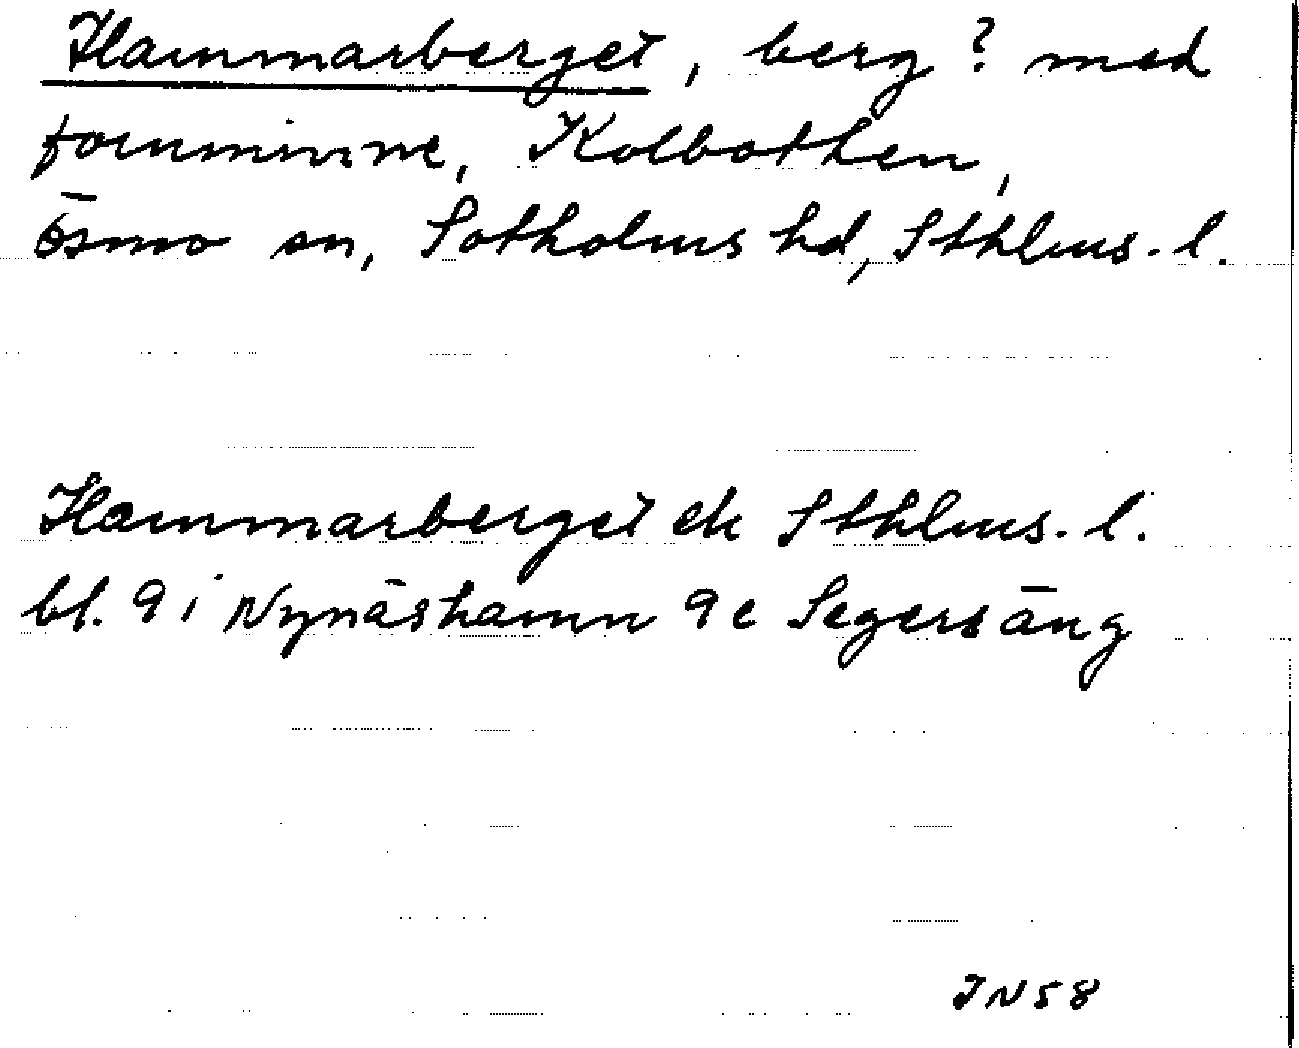 Hammarberget, berg? med
fornminne, Kolbotten,
Ösmo sn, Sotholms hd, Sthlms. l.
Hammarberget ek Sthlms. l.
bl. 9 i Nynäshamn 9 e Segersäng
JN58